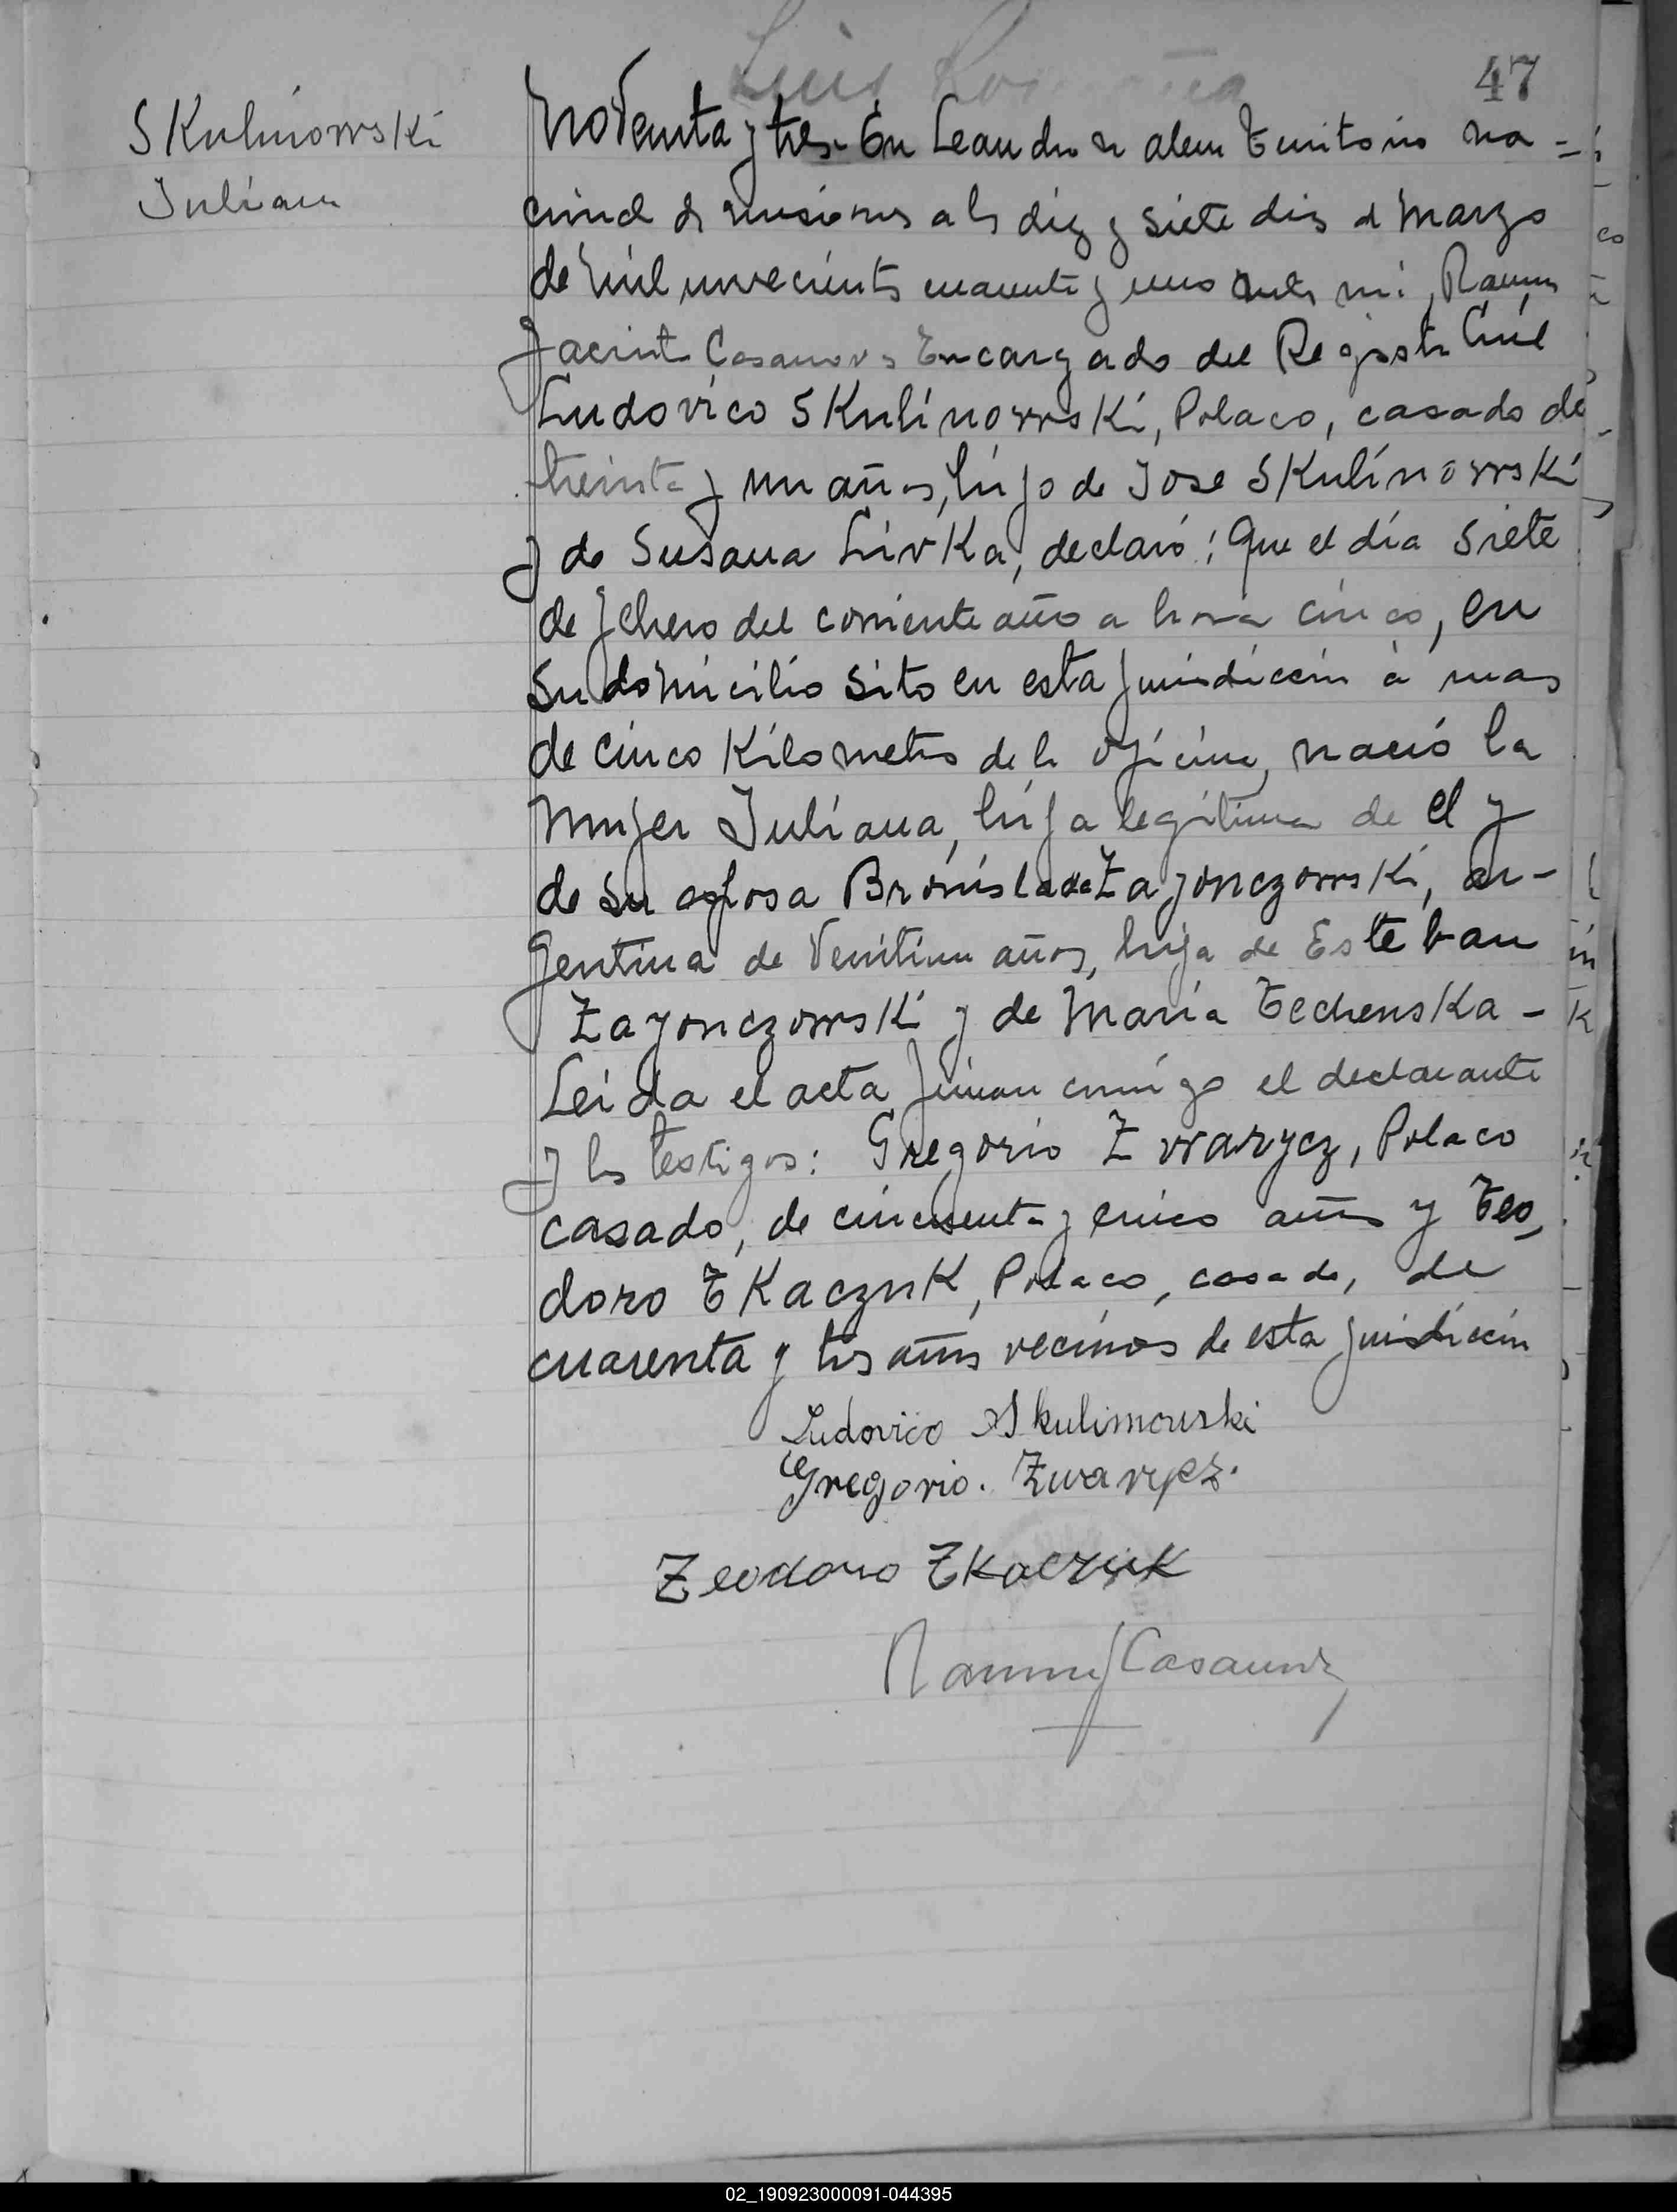 47
SKulinowski
Juliana
Noventa y tres. En Leandro N alem Territorio na-
cional de misiones a los diez y siete dias de Marzo
de Mil novecientos cuarenta y uno ante mi, Ramon
Jacinto Casanova Encargado del Registro Civil
Ludovico SKulinowski, Polaco, casado de
treinta y un años, hijo de Jose SKulinowski
y de Susana LivKa, declaró: Que el día siete
de febrero del corriente año a hora cinco, en
su domicilio sito en esta jurisdiccion a mas
de cinco Kilometros de la oficina, nació la
mujer Juliana, hija legitima de el y
de su esposa Bronislada Zayonczowski, ar-
gentina de Veintiun años, hija de Esteban
Zayonczowski y de María TechensKa -
Leida el acta firman conmigo el declarante
y los testigos: Gregorio Zwarycz, Polaco
casado, de cincuenta y cinco años y Teo-
doro TKaczuK, Polaco, casado, de
cuarenta y tres años vecinos de esta jurisdiccion
Ludovico Skulimowski
Gregorio. Zwarycz.
Teodoro TKaczuK
Ramon J Casanova
02_190923000091-044395